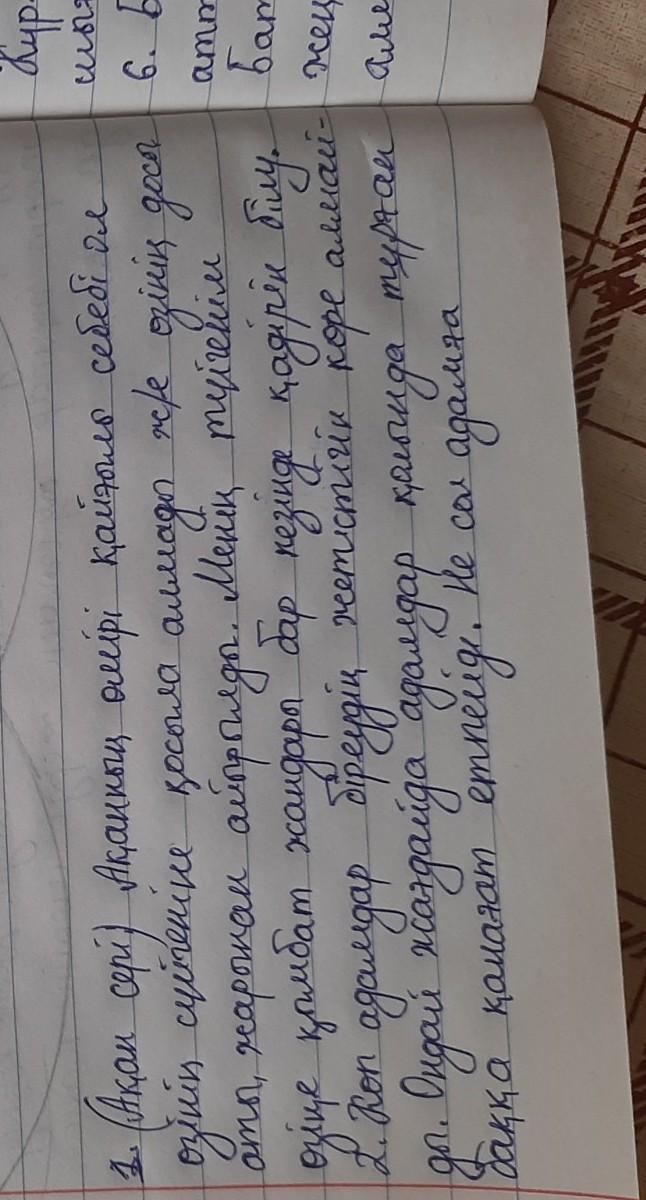 6. Б
атт
бат
жең
1. (Ақан сері) Ақанның өмірі қайғылы себебі ол
өзінің сүйгеніне қосыла алмады ж/е өзінің досы
аты, жарынан айырылды. Менің түйгенім
өзіңе қымбат жандары бар кезінде қадірін білу.
2. Көп адамдар біреудің жетістігін көре алмай-
ды. Ондай жағдайда адамдар қолында тұрған
баққа қанағат етпейді. Не сол адамға